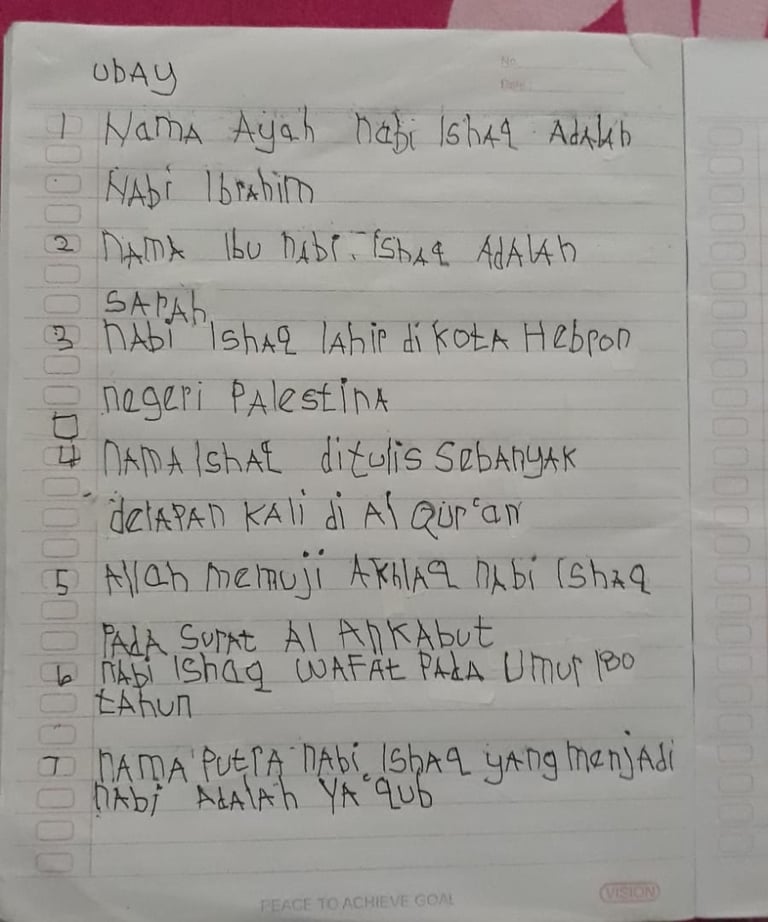 UbAy
No.
Date.
1 NAMA Ayah nabi IshAq AdALAh
NAbi IbrAhim
2 NAMA Ibu nAbi. IshAq AdALAh
SARAh
3 nAbi IshAq lAhir di KOtA Hebron
negeri PAlestinA
4 nAMA IshAq ditulis SebAnyAK
delAPAn KAli di Al QUr'an
5 Allah memuji AKhlAq nAbi IshAq
PAdA SurAt Al AnKAbut
6 nAbi IShaq WAFAt PAdA Umur 180
tAhun
7 nAMA PutrA nAbi IShAq yAng menjAdi
nAbi AdAlAh YA'qub
PEACE TO ACHIEVE GOAL
VISION